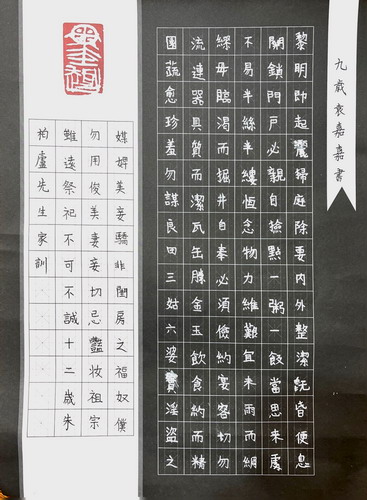 九歲袁嘉嘉書
黎明即起灑掃庭除要內外整潔既昏便息
關鎖門戶必親自檢點一粥一飯當思來處
不易半絲半縷恆念物力維艱宜未雨而綢
繆毋臨渴而掘井自奉必須儉約宴客切勿
流連器具質而潔瓦缶勝金玉飲食約而精
園蔬愈珍羞勿謀良田三姑六婆實淫盜之
媒婢美妾驕非閨房之福奴僕
勿用俊美妻妾切忌豔妝祖宗
雖遠祭祀不可不誠十二歲朱
柏廬先生家訓